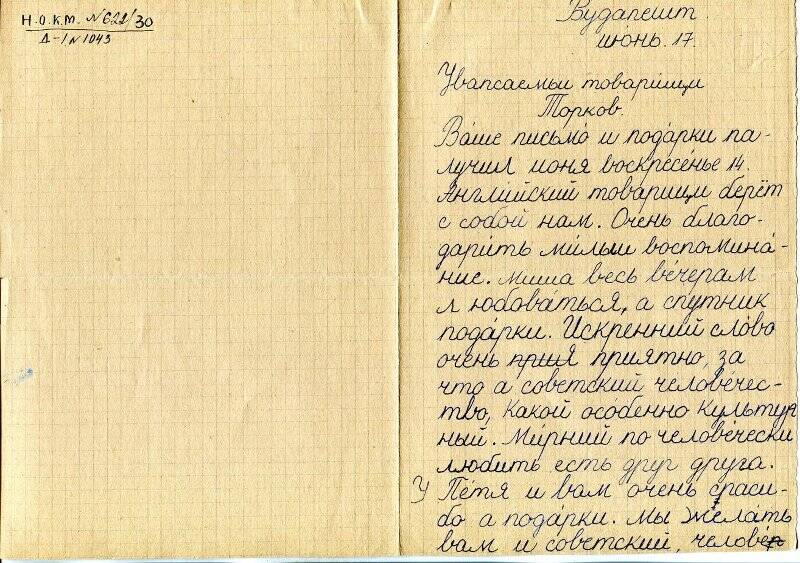 Н.О.К.М. №622/30
Д-I №1043
Вудапешт.
июнь. 17.
Увапсаемьи товарищи
Торков.
Ваше письмо́ и пода́рки па-
лучил июня воскресе́нье 14.
Англи́йский товарищи берёт
с собой нам. Очень благо-
дари́ть ми́льи воспомина́-
ние. миша весь ве́черам
любова́ться, а спутник
пода́рки. Искренний сло́во
очень приятно, за
что а сове́тский челове́чес-
тво, какой осо́бенно культур
ный. Ми́рний по челове́чески
люби́ть есть друг друга.
У Пе́тя и вам очень спаси-
бо а пода́рки. мы жела́ть
вам и сове́тский, челове́